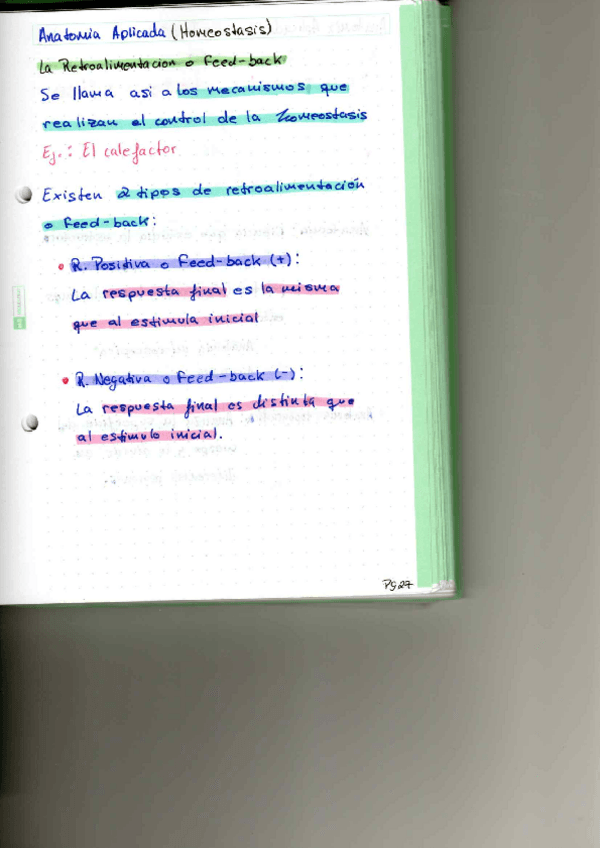 Anatomia Aplicada (Homeostasis)
La Retroalimentacion o Feed-back
Se llama asi a los mecanismos, que
realizan el control de la homeostasis
Ej.: El calefactor
Existen 2 tipos de retroalimentación
o Feed-back:
• R. Positiva o Feed-back (+):
La respuesta final es la misma
que al estimula inicial
• R. Negativa o Feed-back (-):
La respuesta final es distinta que
al estimulo inicial.
Pg 27